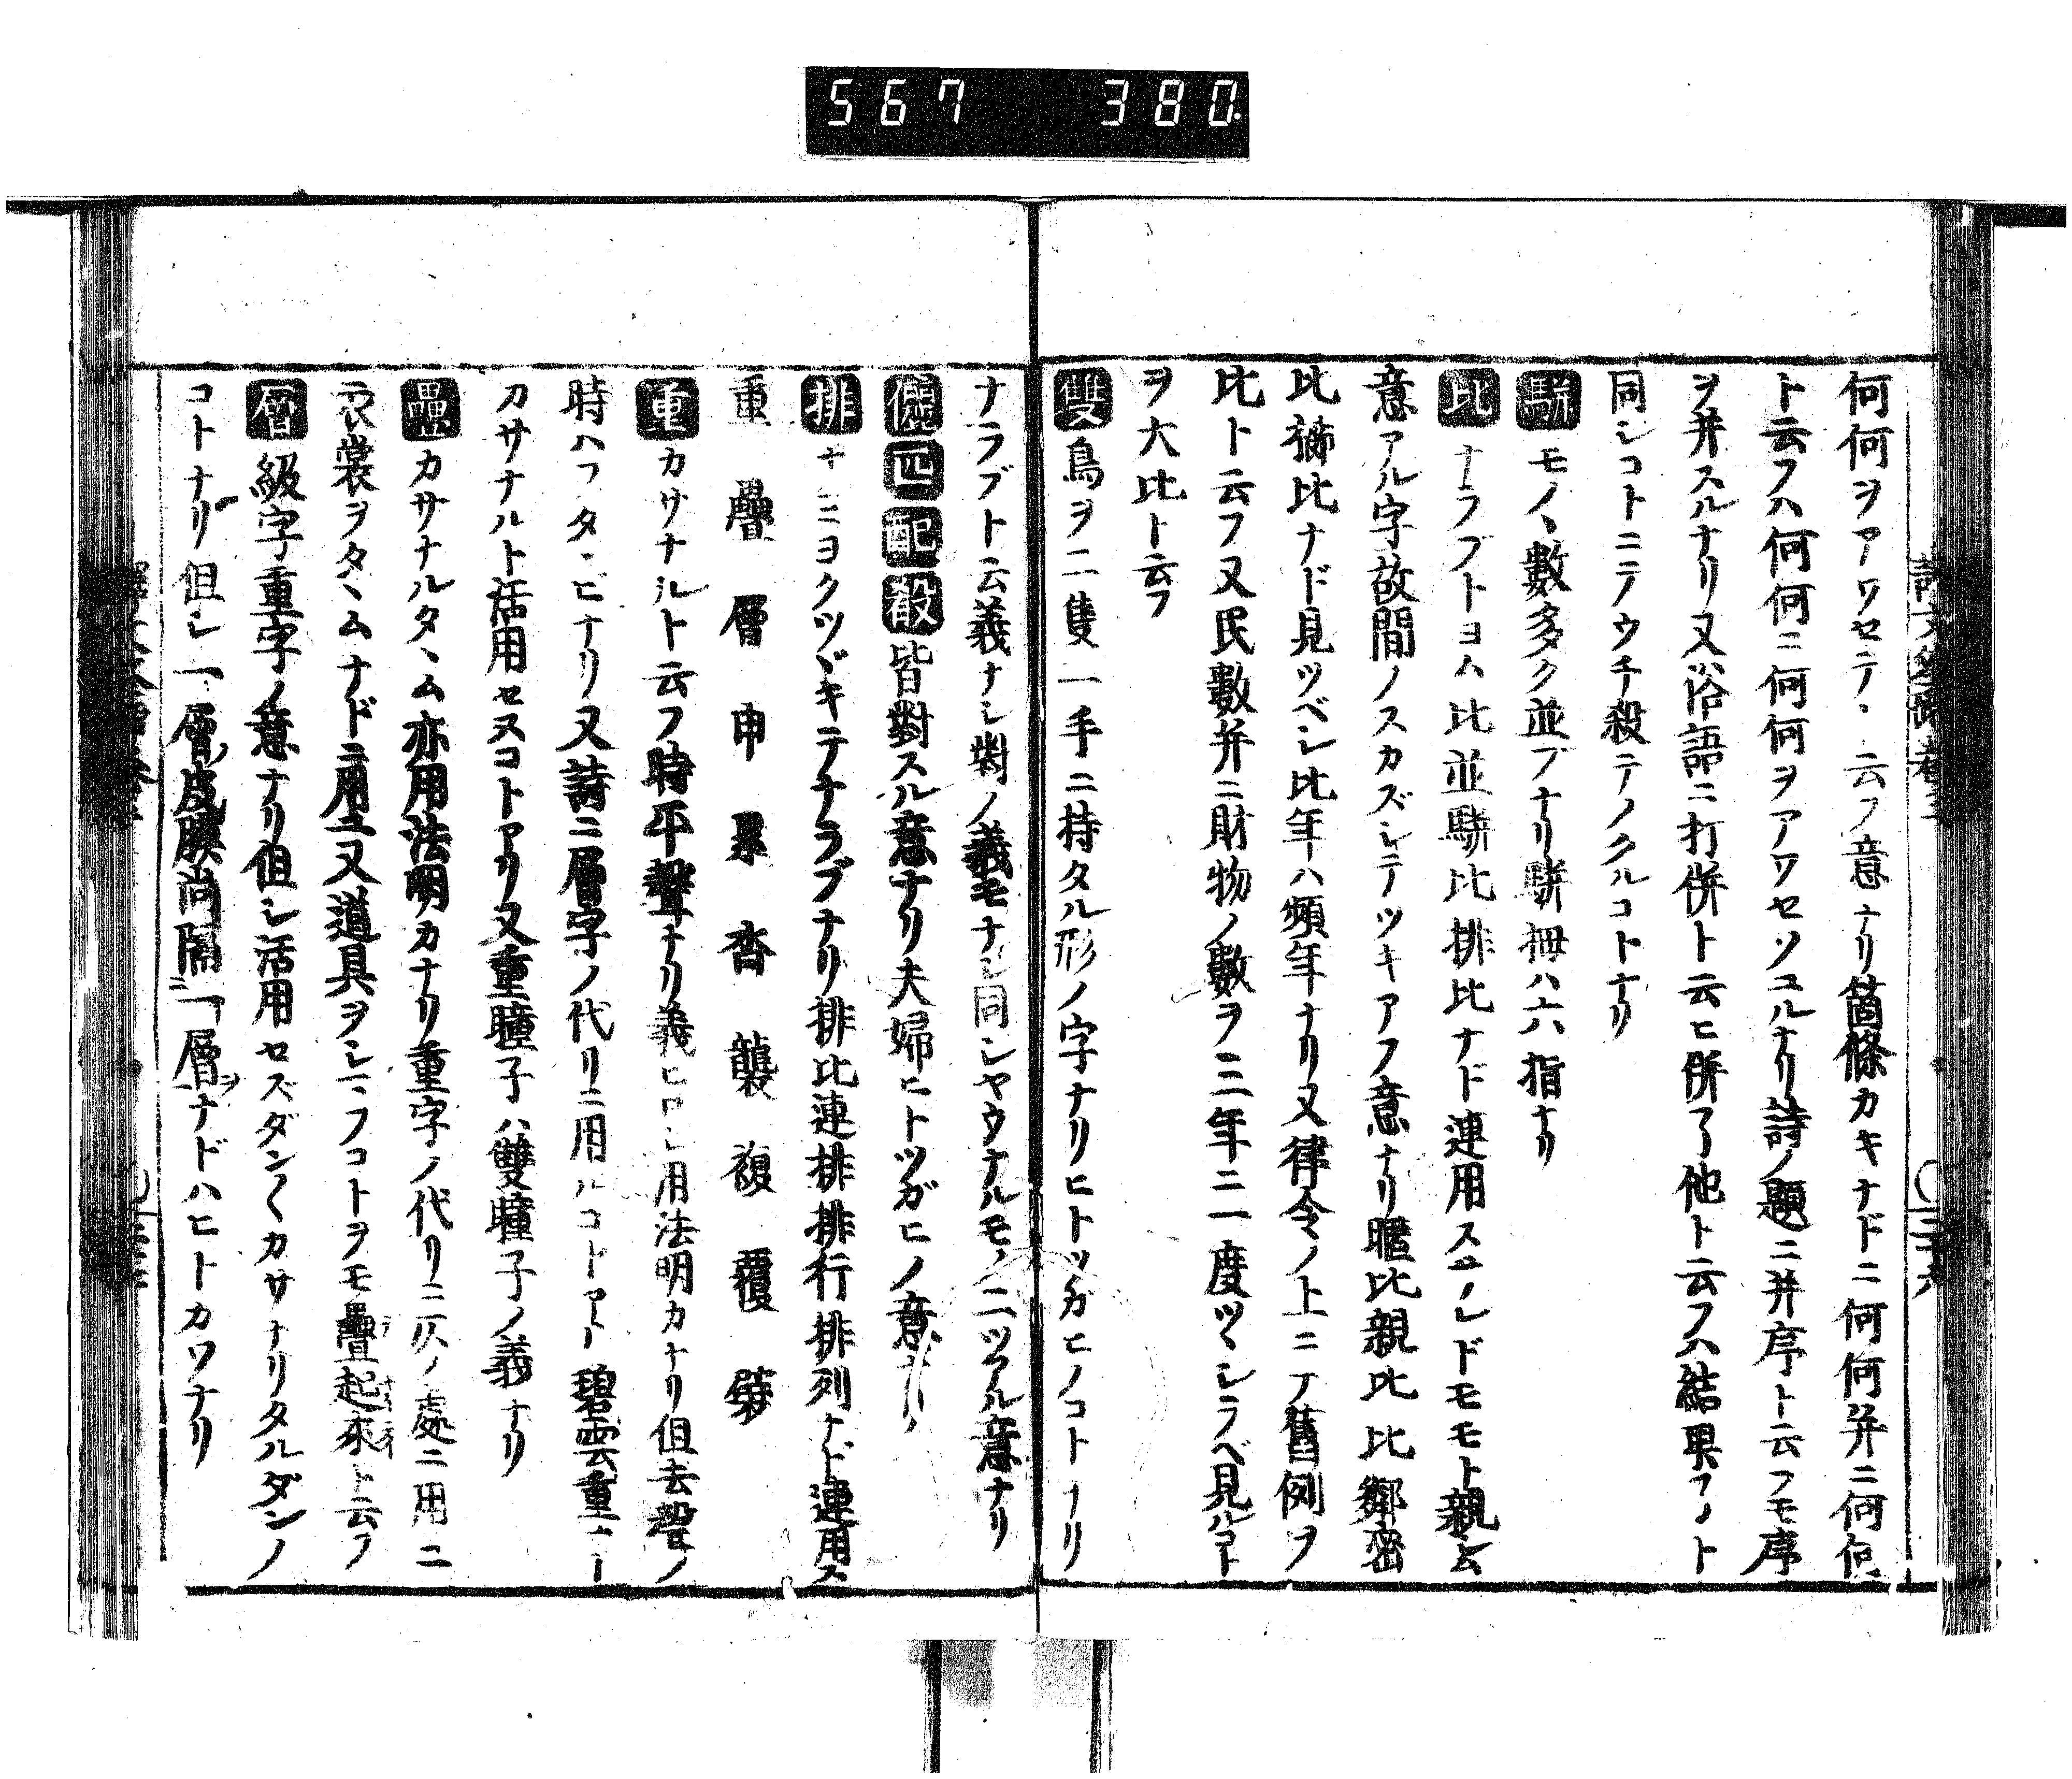 567 380
何何ヲアワセテ、云フ意ナリ箇條カキナドニ何何并ニ何何
ト云フハ何何ニ何何ヲアワセソユルナリ詩ノ題ニ并序ト云フモ序
ヲ并スルナリ又俗語ニ打併ト云ヒ併了他ト云フハ結果フノト
同シコトニテウチ殺テノクルコトナリ
駢モノヽ數多ク並フナリ駢拇ハ六指ナリ
比ナラブトヨム比並駢比排比ナド連用スコレドモモト親シム
意アル字故間ノスカズシテツキアフ意ナリ暱比親比比鄰密
比櫛比ナド見ツベシ比年ハ頻年ナリ又律令ノ上ニテ舊例ヲ
比ト云フ又民數并ニ財物ノ數ヲ三年ニ一度ツヽシラベ見ルコト
ヲ大比ト云フ
雙鳥ヲ二隻一手ニ持タル形ノ字ナリヒトツガヒノコトナリ
ナラブト云義ナシ對ノ義モナシ同シヤウナルモノ二ツアル意ナリ
儷匹配敵皆對スル意ナリ夫婦ヒトツガヒノ意ナリ
排ナニヨクツヾキテナラブナリ排比連排排行排列ナド連用ス
重疊層申累沓襲複覆荐
重カサナルト云フ時平聲ナリ義ヒロシ用法明カナリ但去聲ノ
時ハフタヽビナリ又詩ニ層字ノ代リニ用ルコトアリ碧雲重ナリ
カサナルト活用セヌコトアリ又重瞳子ハ雙瞳子ノ義ナリ
疊カサナルタヽム亦用法明カナリ重字ノ代リニ仄ノ處ニ用ニ
衣裳ヲタヽムナドニ用ユ又道具ヲシマフコトヲモ疊起來ト云フ
層級字重字ノ意ナリ但シ活用セズダン〱カサナリタルダンノ
コトナリ但シ一層皮膜尚隔ニ一層ヲナドハヒトカワナリ